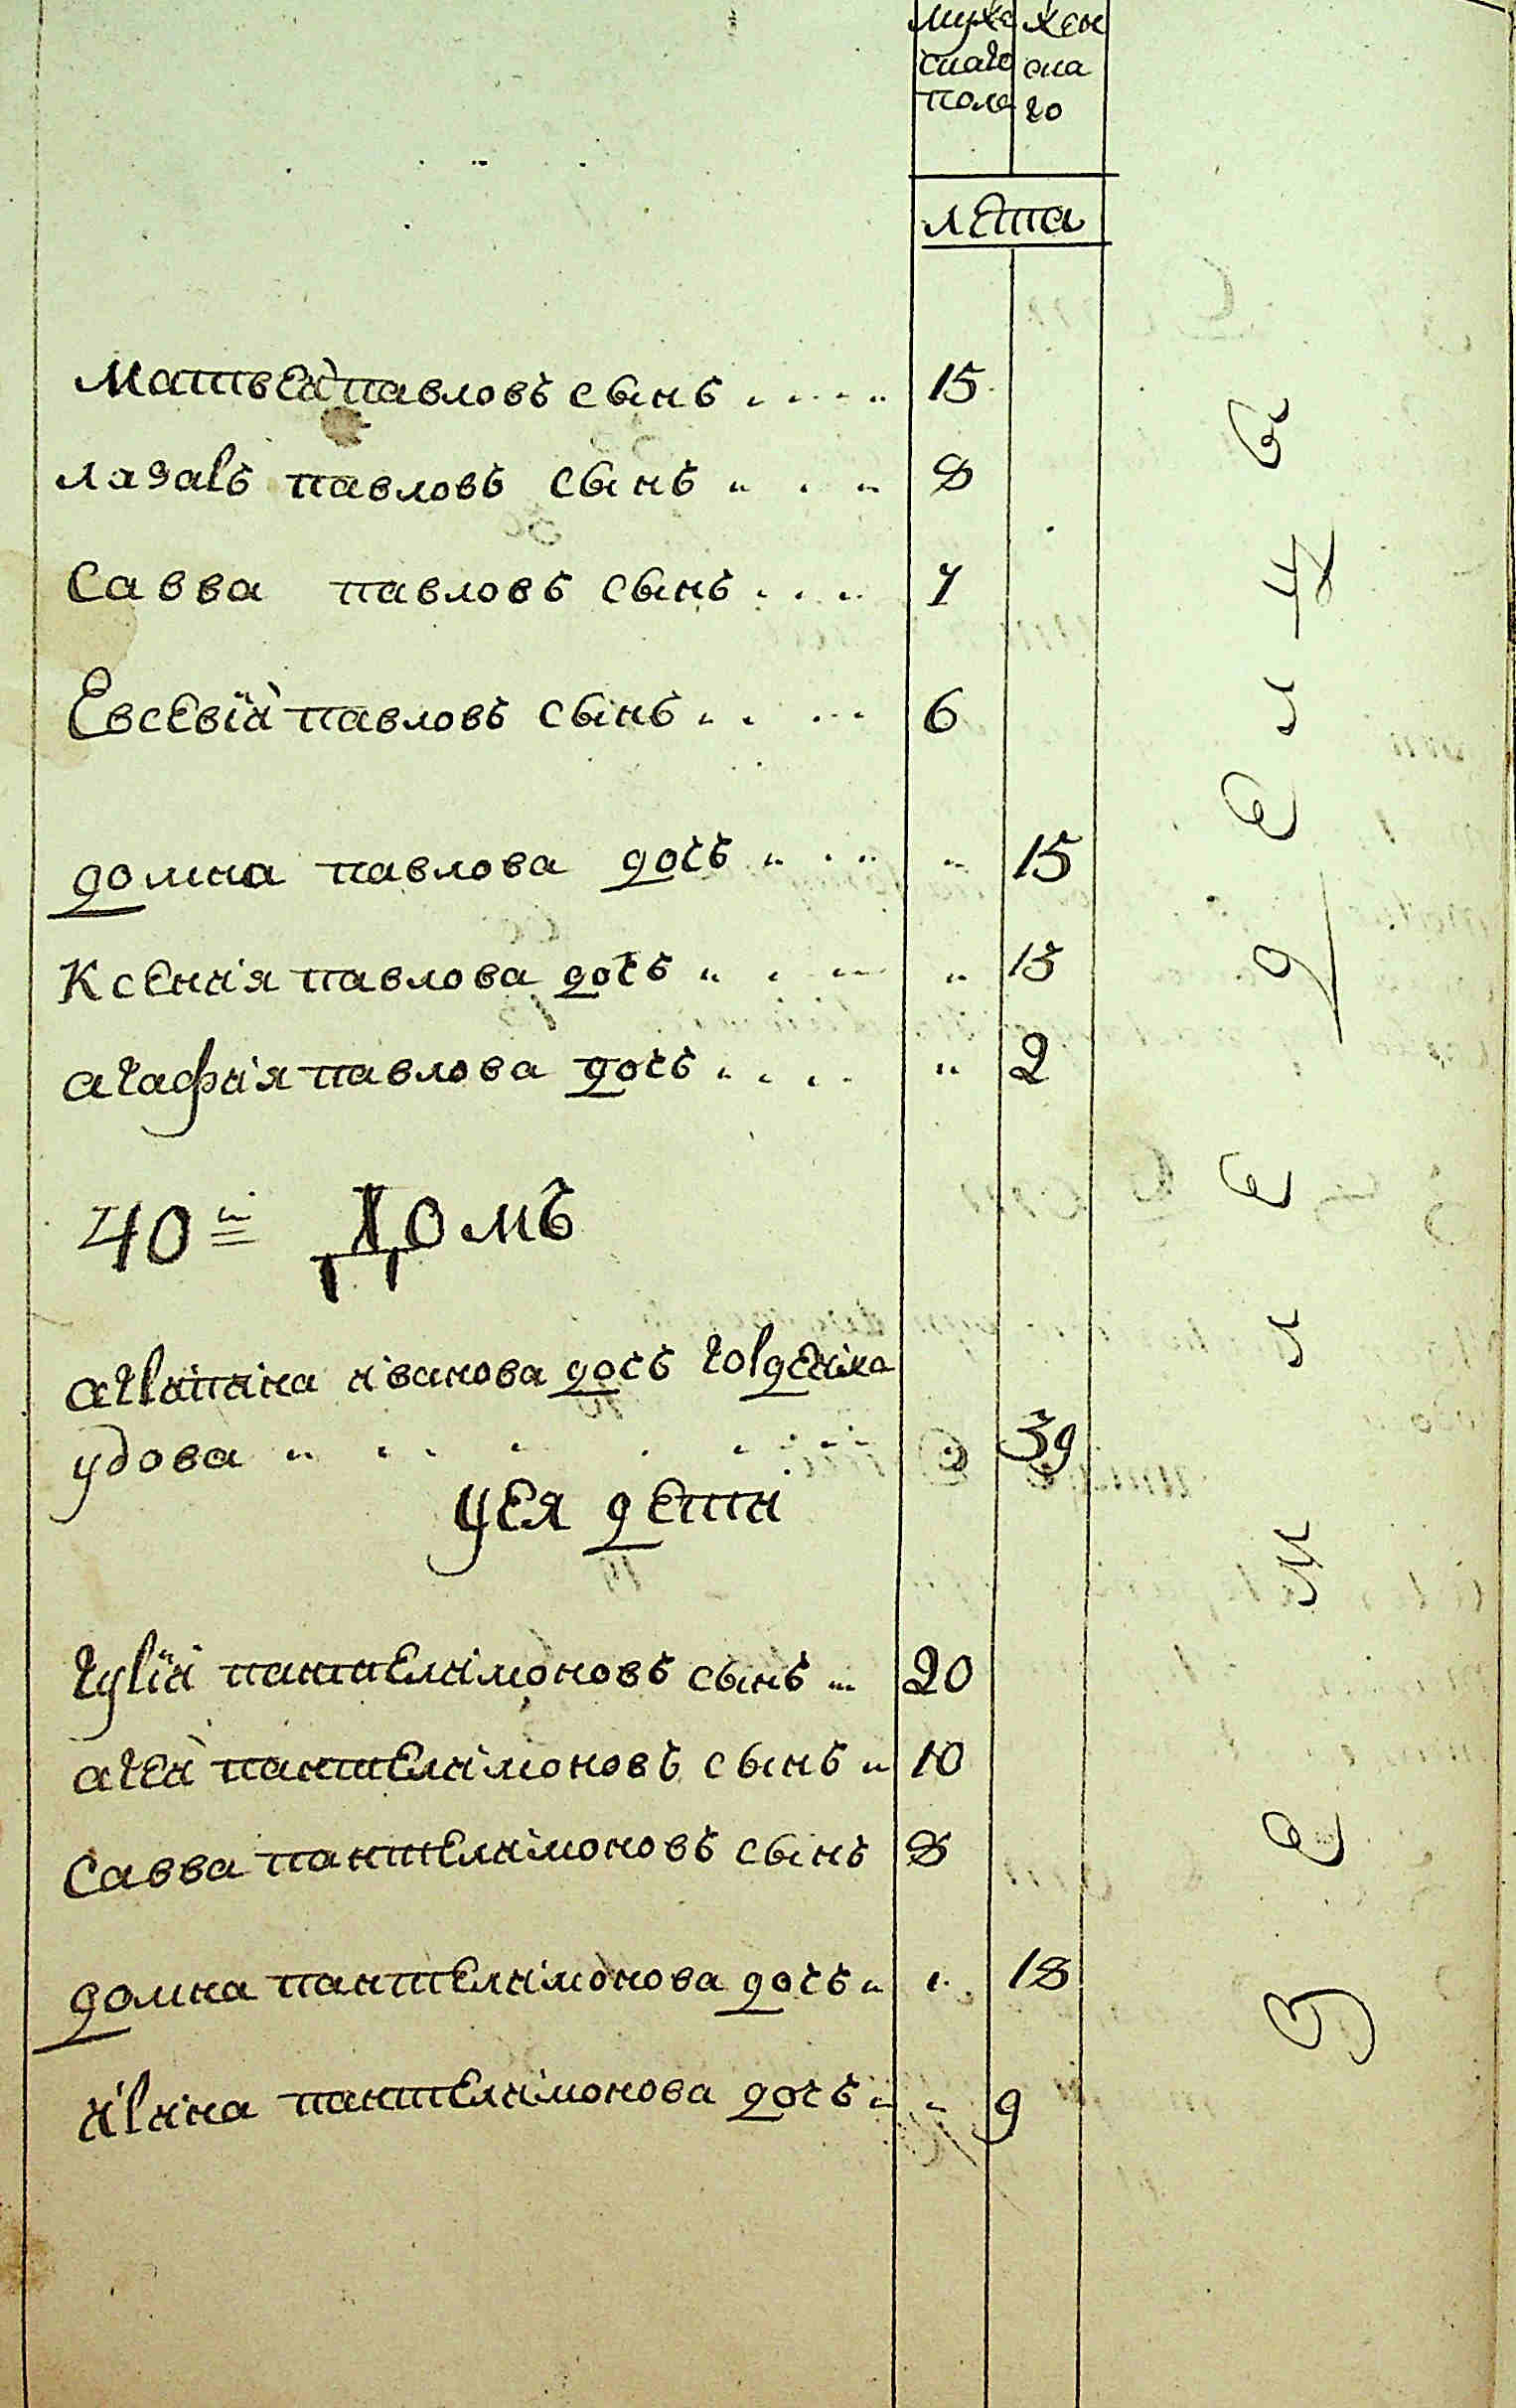 муже жен
скаго ска
пола го
лета
Матвей павловъ сынъ 15
лазаръ павловъ сынъ 8
Савва павловъ сынъ 7
Евсевїй павловъ сынъ 6
домна павлова дочъ 15
Ксения павлова дочъ 13
агафия павлова дочъ 2
40й Домъ
агрипина иванова дочъ
удова 39
уея дети
гурїй пантелимоновъ сынъ 20
агей пантелимоновъ сынъ 10
Савва пантелимоновъ сынъ 8
домна пантелимонова дочъ 18
ирина пантелимонова дочъ 9
Земледелцы